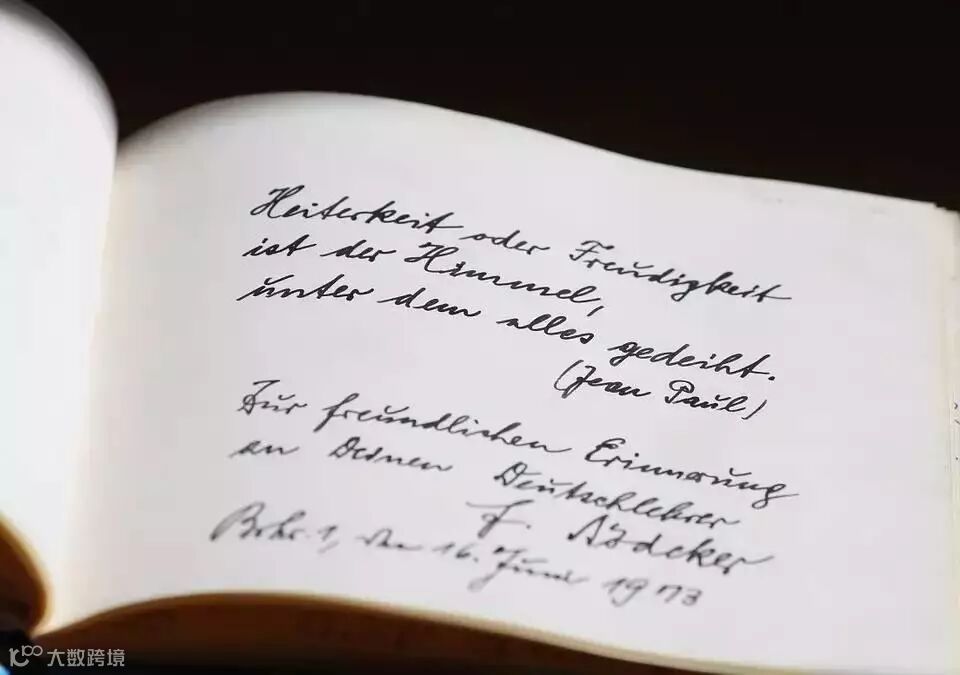 Heiterkeit oder Freudigkeit
ist der Himmel,
unter dem alles gedeiht.
(Jean Paul)
Zur freundlichen Erinnerung
an Deinen Deutschlehrer
F.
den 16. Juni 1973
大数跨境